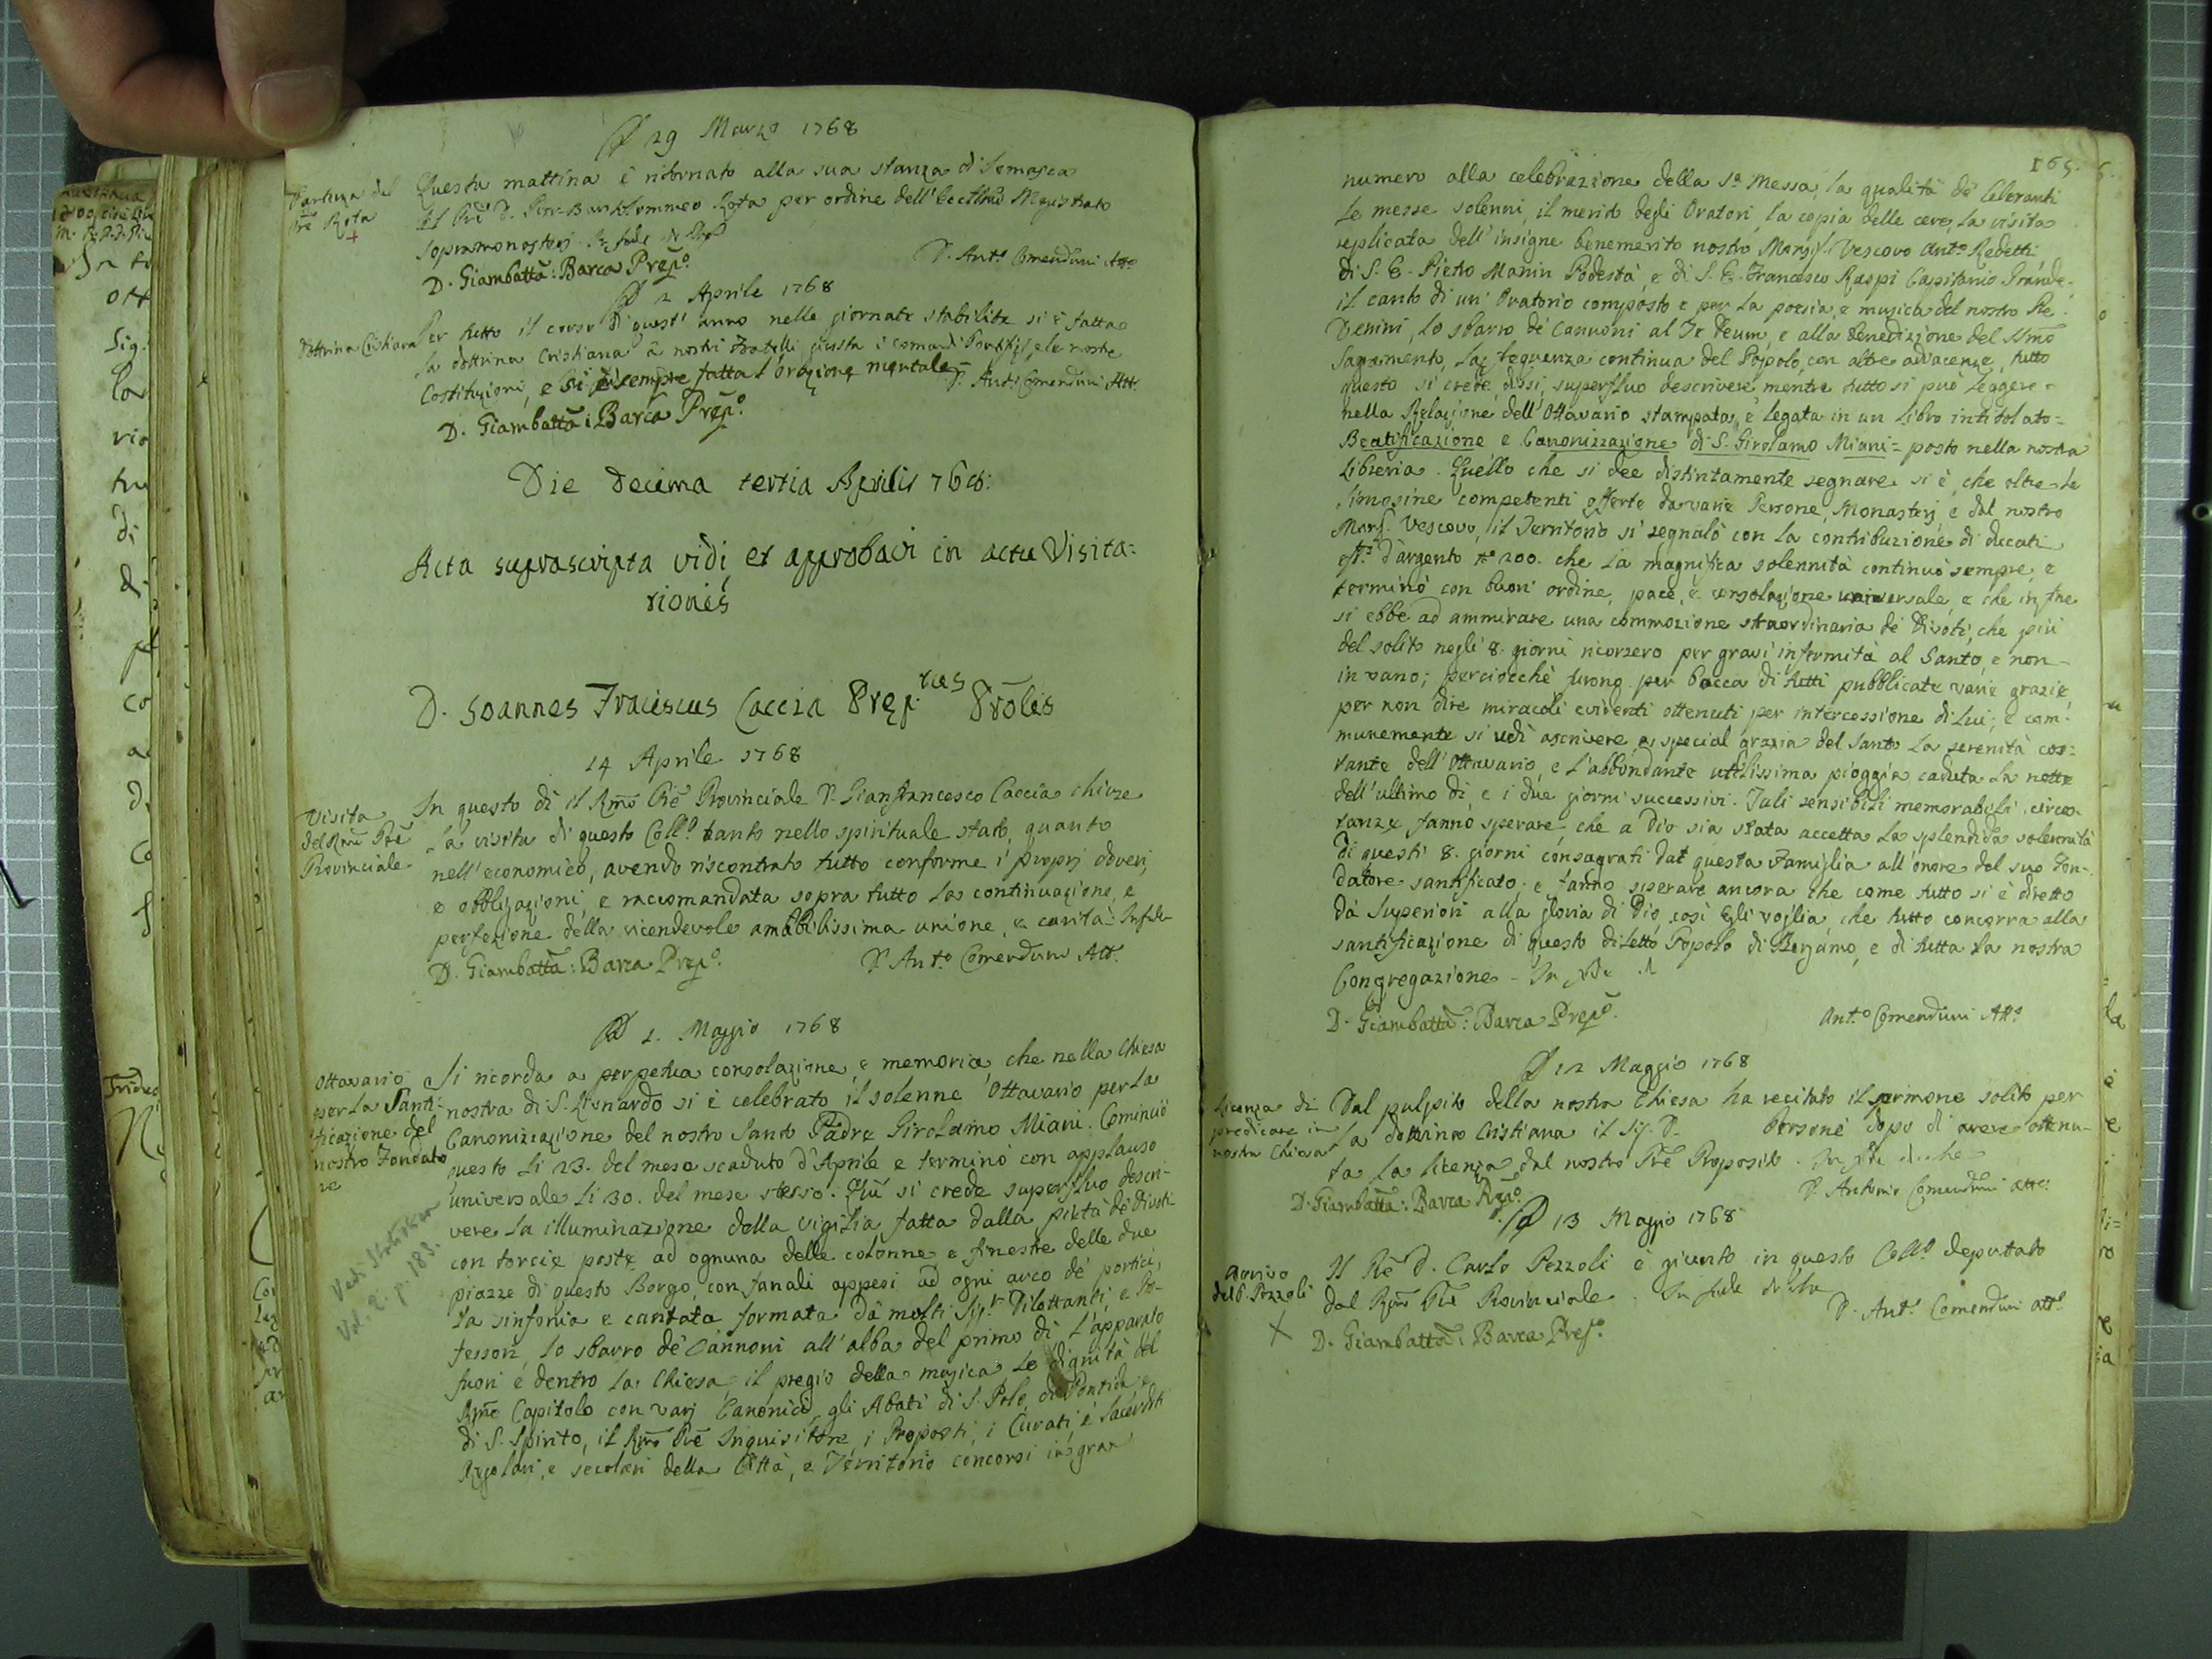 A 29 Marzo 1768
Partenza del
Pre Rota
+
Questa mattina è ritornato alla sua stanza di Somasca
Il Pre D. Pier Bartolommeo Rota per ordine dell'Eccmo Magistrato
sopramonasterj. In fede
D. Giambatta: Barca Prepo.
D. Anto Comenduni Atto
A 2 Aprile 1768
Dottrina Cristiana
Per tutto il corso di quest'anno nelle giornate stabilite si è fatta
la dottrina Cristiana a nostri Fratelli giusta i comandi Pontifizj, e le nostre
Costituzioni, e si è sempre fatta l'orazione mentale
D. Anto Comenduni Atto
D. Giambatta: Barca Prepo.
Die decima tertia Aprilis 768:
Acta suprascripta vidi, et approbavi in actu Visita=
tionis
D. Joannes Franciscus Caccia Prep.tus Prōlis
14 Aprile 1768
Visita
del Rmo Pre
Provinciale
In questo dì il Rmo Pre Provinciale D. Gianfrancesco Caccia chiuse
la visita di questo Collo tanto nello spirituale stato, quanto
nell'economico, avendo riscontrato tutto conforme i proprj doveri,
e obbligazioni, e raccomandata sopra tutto la continuazione, e
perfezione della vicendevole amabilissima unione, e carità. In fede
D. Giambatta: Barca Prepo.
D. Anto Comenduni Atto.
A 1. Maggio 1768
Ottavario
per la Santi-
ficazione del
nostro Fondato
re
Vedi
Vol. 2. p. 183.
Si ricorda a perpetua consolazione, e memoria, che nella Chiesa
nostra di S. Lionardo si è celebrato il solenne Ottavario per la
Canonizzazione del nostro Santo Padre Girolamo Miani. Cominciò
questo li 23. del mese scaduto d'Aprile e terminò con applauso
universale li 30. del mese stesso. Quì si crede superfluo descri-
vere la illuminazione della vigilia fatta dalla pietà de' divoti
con torcie poste ad ognuna delle colonne e finestre delle due
piazze di questo Borgo, con fanali appesi ad ogni arco de' portici,
la sinfonia e cantata formata da molti Sigri Dilettanti, e Pro-
fessori, lo sbarro de' Cannoni all'alba del primo dì, l'apparato
fuori e dentro la Chiesa, il pregio della musica, le dignità del
Rmo Capitolo con varj Canonici, gli Abati di S. Polo, di Pontida, e
di S. Spirito, il Rmo Pre Inquisitore, i Proposti, i Curati, e Sacerdoti
Regolari, e secolari della Città, e Territorio concorsi in gran
165.
numero alla celebrazione della Sa Messa, la qualità de' Celebranti
le messe solenni, il merito degli Oratori, la copia delle cere, la visita
replicata dell'insigne benemerito nostro Monsigr Vescovo Anto Redetti
di S. E. Pietro Manin Podestà, e di S. E. Francesco Raspi Capitanio Grande,
il canto di un Oratorio composto e per la poesia, e musica del nostro Pre
Venini, lo sbarro de' Cannoni al Te Deum, e alla benedizione del Ssmo
Sagramento, la frequenza continua del Popolo, con altre adiacenze, tutto
questo si crede, dissi, superfluo descrivere mentre tutto si può leggere
nella Relazione dell'Ottavario stampata, e legata in un Libro intitolato=
Beatificazione e Canonizzazione di S. Girolamo Miani= posto nella nostra
Libreria. Quello che si dee distintamente segnare si è, che oltre le
limosine competenti offerte da varie Persone, Monasterj, e dal nostro
Monsr. Vescovo, il Territorio si segnalò con la contribuzione di ducati
d'argento No 200. che la magnifica solennità continuò sempre, e
terminò con buon ordine, pace, e consolazione universale, e che in fine
si ebbe ad ammirare una commozione straordinaria de' Divoti, che più
del solito negli 8. giorni ricorsero per gravi infermità al Santo, e non
in vano; perciocchè furono per bocca di tutti pubblicate varie grazie,
per non dire miracoli evidenti ottenuti per intercessione di Lui; e com-
munemente si udì ascrivere a special grazia del Santo la serenità cos=
tante dell'Ottavario, e l'abbondante utilissima pioggia caduta la notte
dell'ultimo dì, e i due giorni successivi. Tali sensibili memorabili circos-
tanze fanno sperare che a Dio sia stata accetta la splendida solennità
di questi 8. giorni consagrati dat questa Famiglia all'onore del suo Fon-
datore santificato, e fanno sperare ancora che come tutto si è diretto
da' Superiori alla gloria di Dio, così Egli voglia che tutto concorra alla
santificazione di questo diletto Popolo di Bergamo, e di tutta la nostra
Congregazione. In fede
D. Giambatta: Barca Prepo.
Anto Comenduni Atto
A 12 Maggio 1768
Licenza di
predicare in
nostra Chiesa
Dal pulpito della nostra Chiesa ha recitato il sermone solito per
la dottrina Cristiana il Sig. D. Personè dopo di avere ottenu-
ta la licenza dal nostro Pre Proposito. In fede di che
D. Giambatta: Barca Prepo.
D. Antonio Comenduni Atto:
A 13 Maggio 1768
Arrivo
del P. Pezzoli
X
Il Pre D. Carlo Pezzoli è giunto in questo Collo deputato
dal Rmo Pre Provinciale. In fede di che
D. Anto Comenduni Atto
D. Giambatta: Barca Prepo.